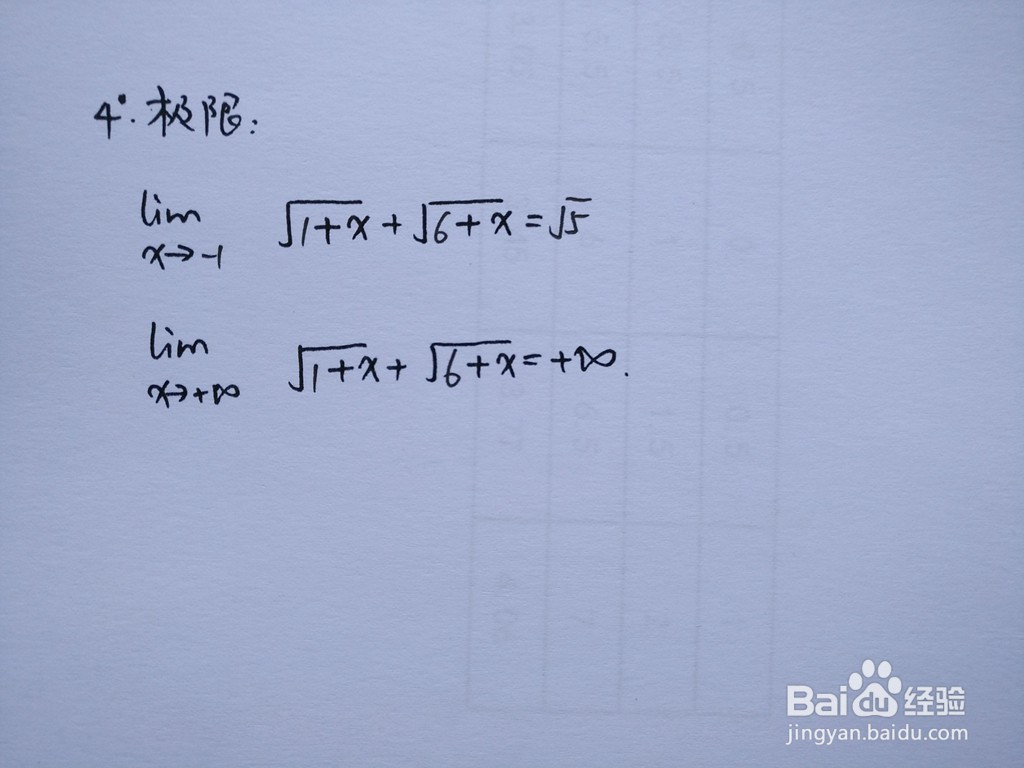 4°. 极限:
lim √1+x + √6+x = √5
x→-1
lim √1+x + √6+x = +∞.
x→+∞
Baidu 经验
jingyan.baidu.com